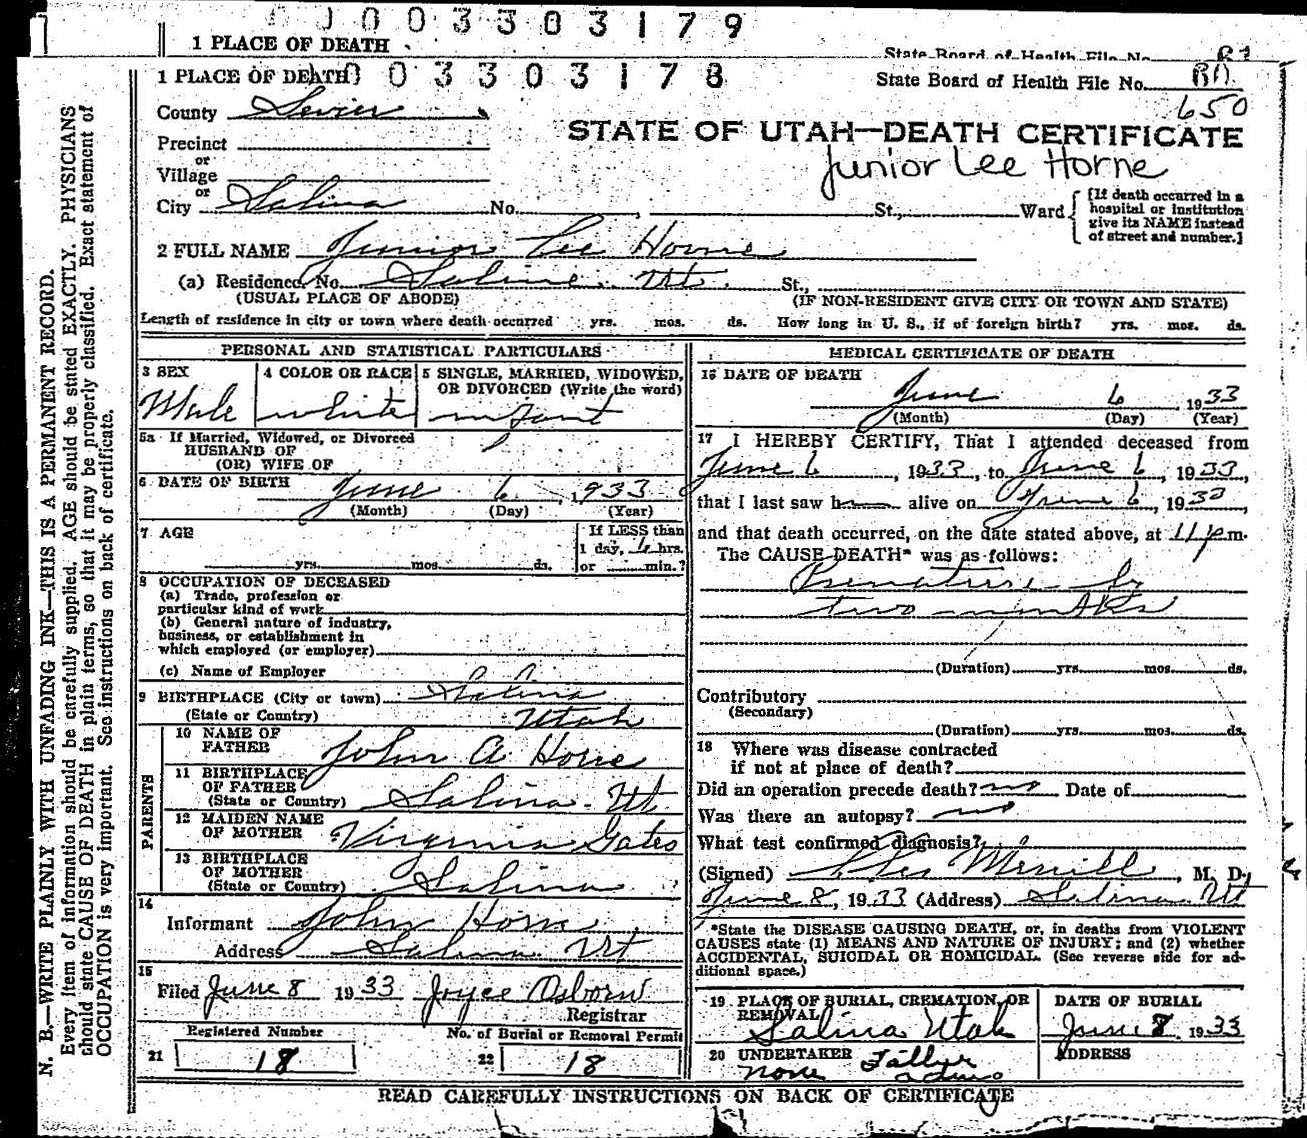 0 0 3 3 0 3 1 7 9
1 PLACE OF DEATH
State Board of Health File No.
1 PLACE OF DEATH
0 0 3 3 0 3 1 7 8
State Board of Health File No.
650
County Sevier
STATE OF UTAH—DEATH CERTIFICATE
Precinct
or
Junior Lee Horne
Village
or
City Salina No. , St., Ward
[If death occurred in a
hospital or institution
give its NAME instead
of street and number.]
2 FULL NAME Junior Lee Horne
(a) Residence. No. Salina Ut. St.,
(USUAL PLACE OF ABODE) (IF NON-RESIDENT GIVE CITY OR TOWN AND STATE)
Length of residence in city or town where death occurred yrs. mos. ds. How long in U. S., if of foreign birth? yrs. mos. ds.
PERSONAL AND STATISTICAL PARTICULARS
3 SEX
Male
4 COLOR OR RACE
white
5 SINGLE, MARRIED, WIDOWED,
OR DIVORCED (Write the word)
infant
5a If Married, Widowed, or Divorced
HUSBAND OF
(OR) WIFE OF
6 DATE OF BIRTH
June 6, 1933
(Month) (Day) (Year)
7 AGE
yrs. mos. ds.
If LESS than
1 day, 6 hrs.
or min.?
8 OCCUPATION OF DECEASED
(a) Trade, profession or
particular kind of work
(b) General nature of industry,
business, or establishment in
which employed (or employer)
(c) Name of Employer
9 BIRTHPLACE (City or town) Salina
(State or Country) Utah
PARENTS
10 NAME OF
FATHER John A Horne
11 BIRTHPLACE
OF FATHER
(State or Country) Salina - Ut.
12 MAIDEN NAME
OF MOTHER Virginia Gates
13 BIRTHPLACE
OF MOTHER
(State or Country) Salina
14
Informant John Horne
Address Salina Ut
15
Filed June 8 1933 Joyce Osborn
Registrar
Registered Number
21 18
No. of Burial or Removal Permit
22 18
MEDICAL CERTIFICATE OF DEATH
16 DATE OF DEATH
June 6, 1933
(Month) (Day) (Year)
17 I HEREBY CERTIFY, That I attended deceased from
June 6, 1933, to June 6, 1933,
that I last saw h alive on June 6, 1933
and that death occurred, on the date stated above, at 11 p m.
The CAUSE DEATH* was as follows:
Premature by
two months
(Duration) yrs. mos. ds.
Contributory
(Secondary)
(Duration) yrs. mos. ds.
18 Where was disease contracted
if not at place of death?
Did an operation precede death? no Date of
Was there an autopsy? no
What test confirmed diagnosis?
(Signed) Merrill, M. D.
June 8, 1933 (Address) Salina Ut
*State the DISEASE CAUSING DEATH, or, in deaths from VIOLENT
CAUSES state (1) MEANS AND NATURE OF INJURY; and (2) whether
ACCIDENTAL, SUICIDAL OR HOMICIDAL. (See reverse side for ad-
ditional space.)
19 PLACE OF BURIAL, CREMATION, OR
REMOVAL
Salina Utah
DATE OF BURIAL
June 8, 1933
20 UNDERTAKER Father
none
ADDRESS
READ CAREFULLY INSTRUCTIONS ON BACK OF CERTIFICATE
N. B.—WRITE PLAINLY WITH UNFADING INK—THIS IS A PERMANENT RECORD.
Every item of information should be carefully supplied. AGE should be stated EXACTLY. PHYSICIANS
should state CAUSE OF DEATH in plain terms, so that it may be properly classified. Exact statement of
OCCUPATION is very important. See instructions on back of certificate.